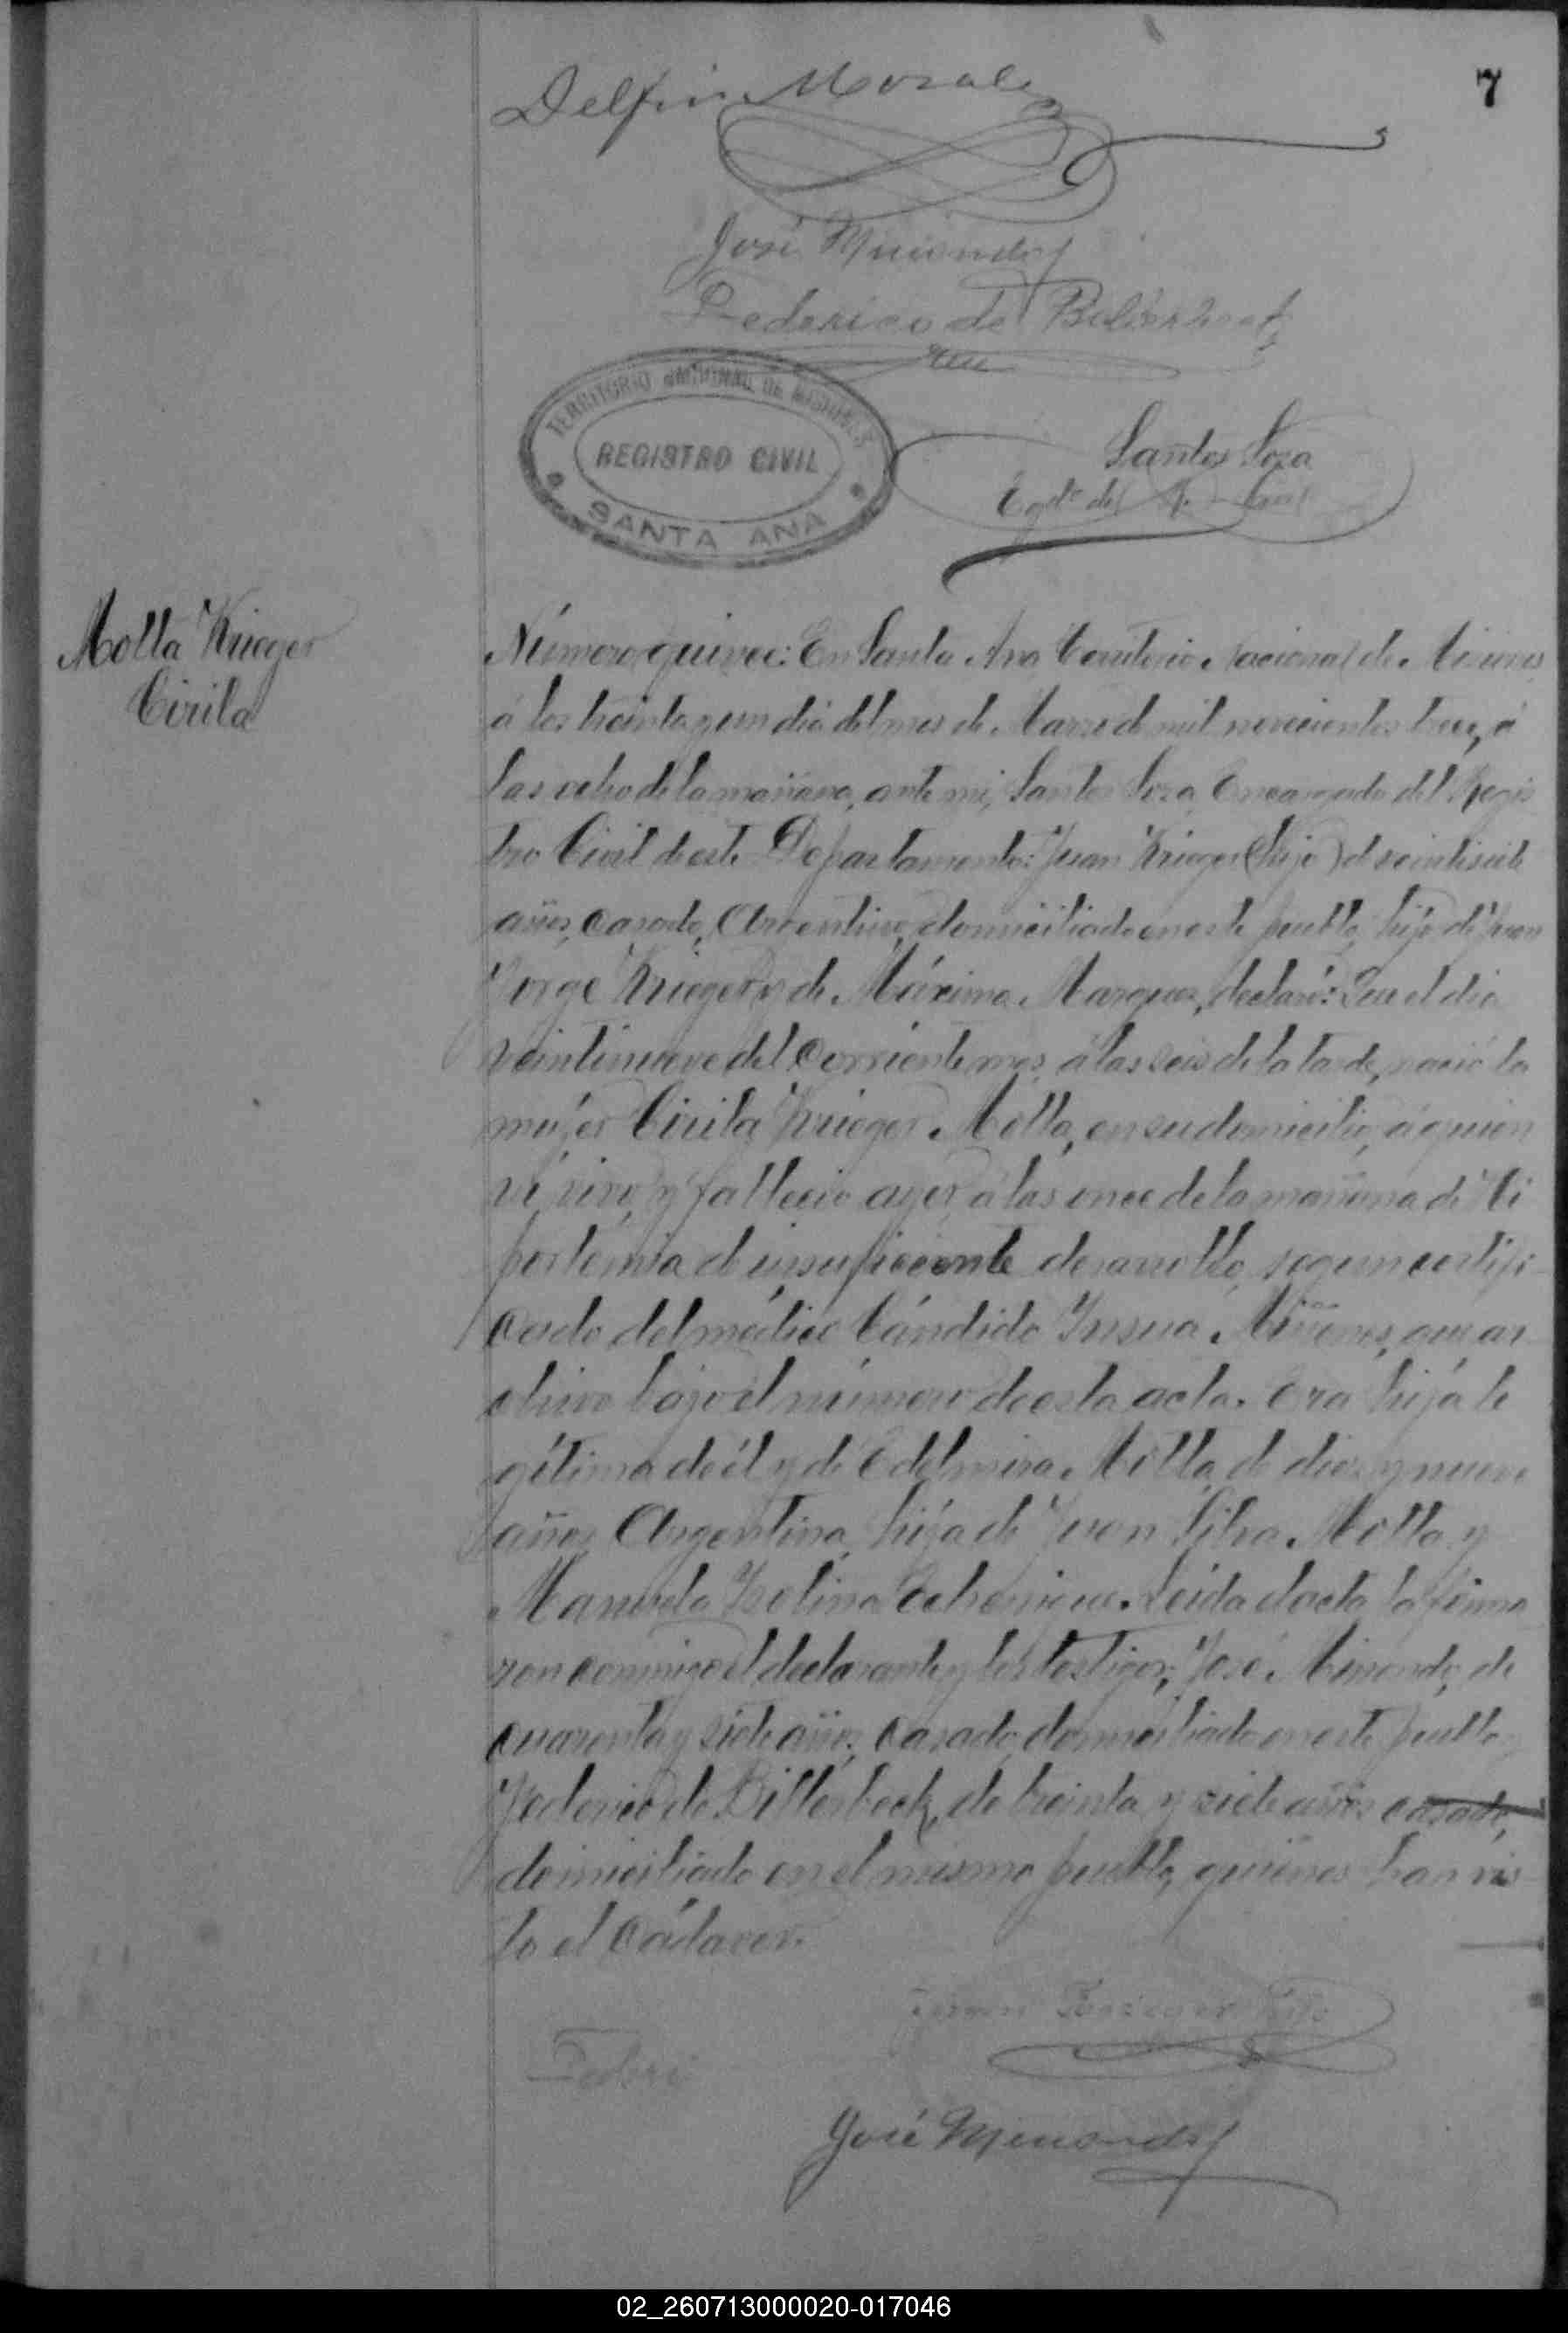 7
Delfin Morale
José Minondo
Federico de Bitterbeck
TERRITORIO NACIONAL DE MISIONES
REGISTRO CIVIL
SANTA ANA
Santos Loza
Egdo del R. Civil
Molta Krieger
Cirila
Número quince: En Santa Ana Territorio Nacional de Misiones
á los treinta y un dia del mes de Marzo de mil novecientos trece, á
las ocho de la mañana, ante mi, Santos Loza Encargado del Regis
tro Civil de este Departamento: Juan Krieger (hijo) de veintisiete
años, casado, Argentino, domiciliado en este pueblo, hijo de Juan
Jorge Krieger y de Máxima Marques, declaró: Que el dia
veintinueve del corriente mes, á las seis de la tarde, nació la
mujer Cirila Krieger Molta, en su domicilio, á quien
ví vivo, y falleció ayer á las once de la mañana de
de insuficiente desarrollo, segun certifi
cado del médico Cándido Insua Miñones, que ar
chivo bajo el número de esta acta. Era hija le
gítima de él y de Edelmira Molta, de diez y nueve
años, Argentina, hija de Juan Silva Molta y
Manuela Echenique. Leida el acta la firma
ron conmigo el declarante y los testigos; José Minondo, de
cuarenta y siete años, casado, domiciliado en este pueblo y
Federico de Bitterbeck, de treinta y siete años casado,
domiciliado en el mismo pueblo, quienes han vis
to el cádaver.
Juan Krieger hijo
José Minondo
02_260713000020-017046